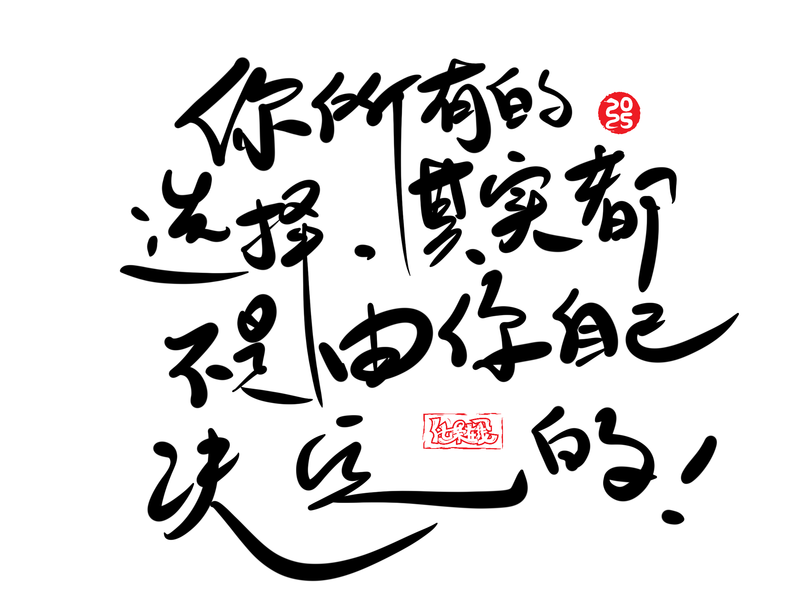 你所有的
20
25
选择，其实都
不是由你自己
决定的！